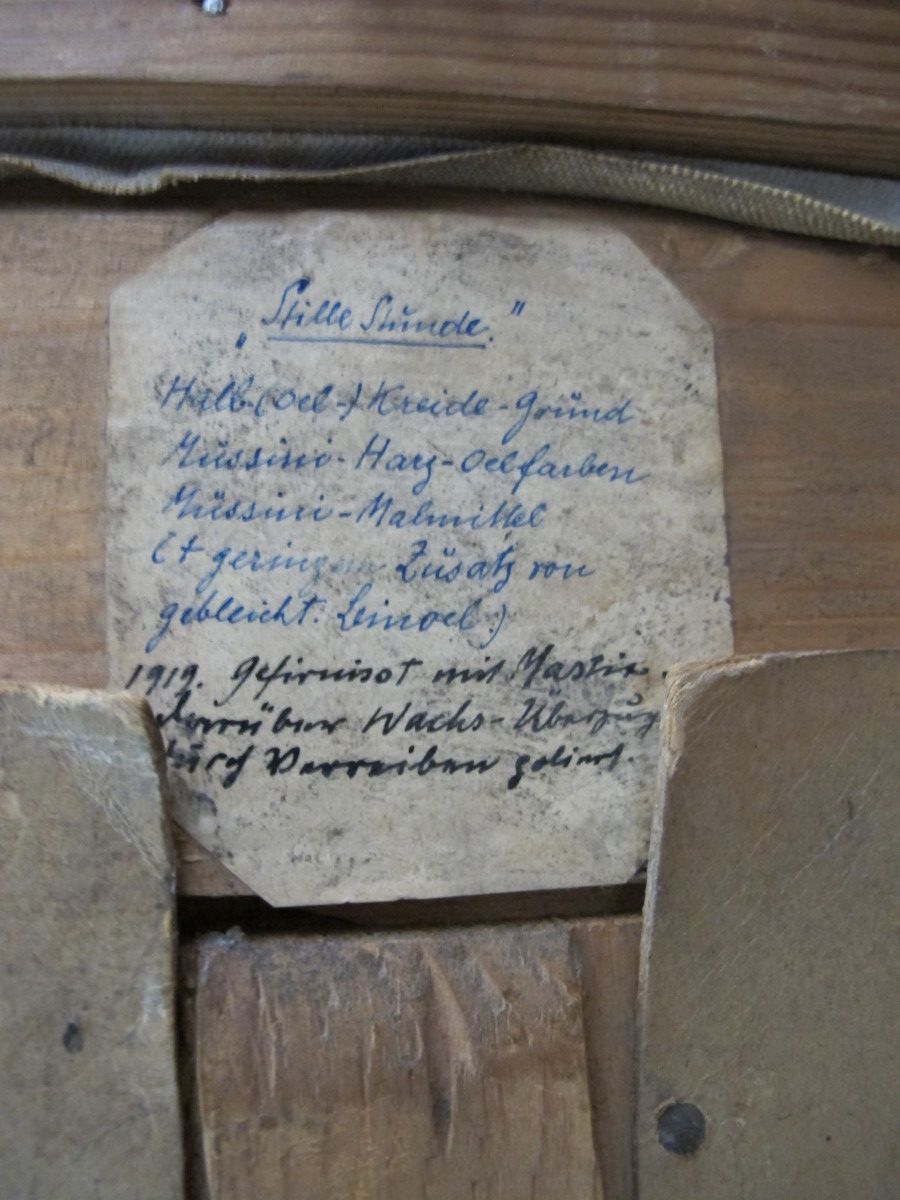 „Stille Stunde."
Halb-(Oel-)Kreide-Grund
Mussini-Harz-Oelfarben
Mussini-Malmittel
(+ geringem Zusatz von
gebleicht. Leinoel.)
1919. Gefirnisst mit Mastix.
Darüber Wachs-Überzug
durch Verreiben poliert.